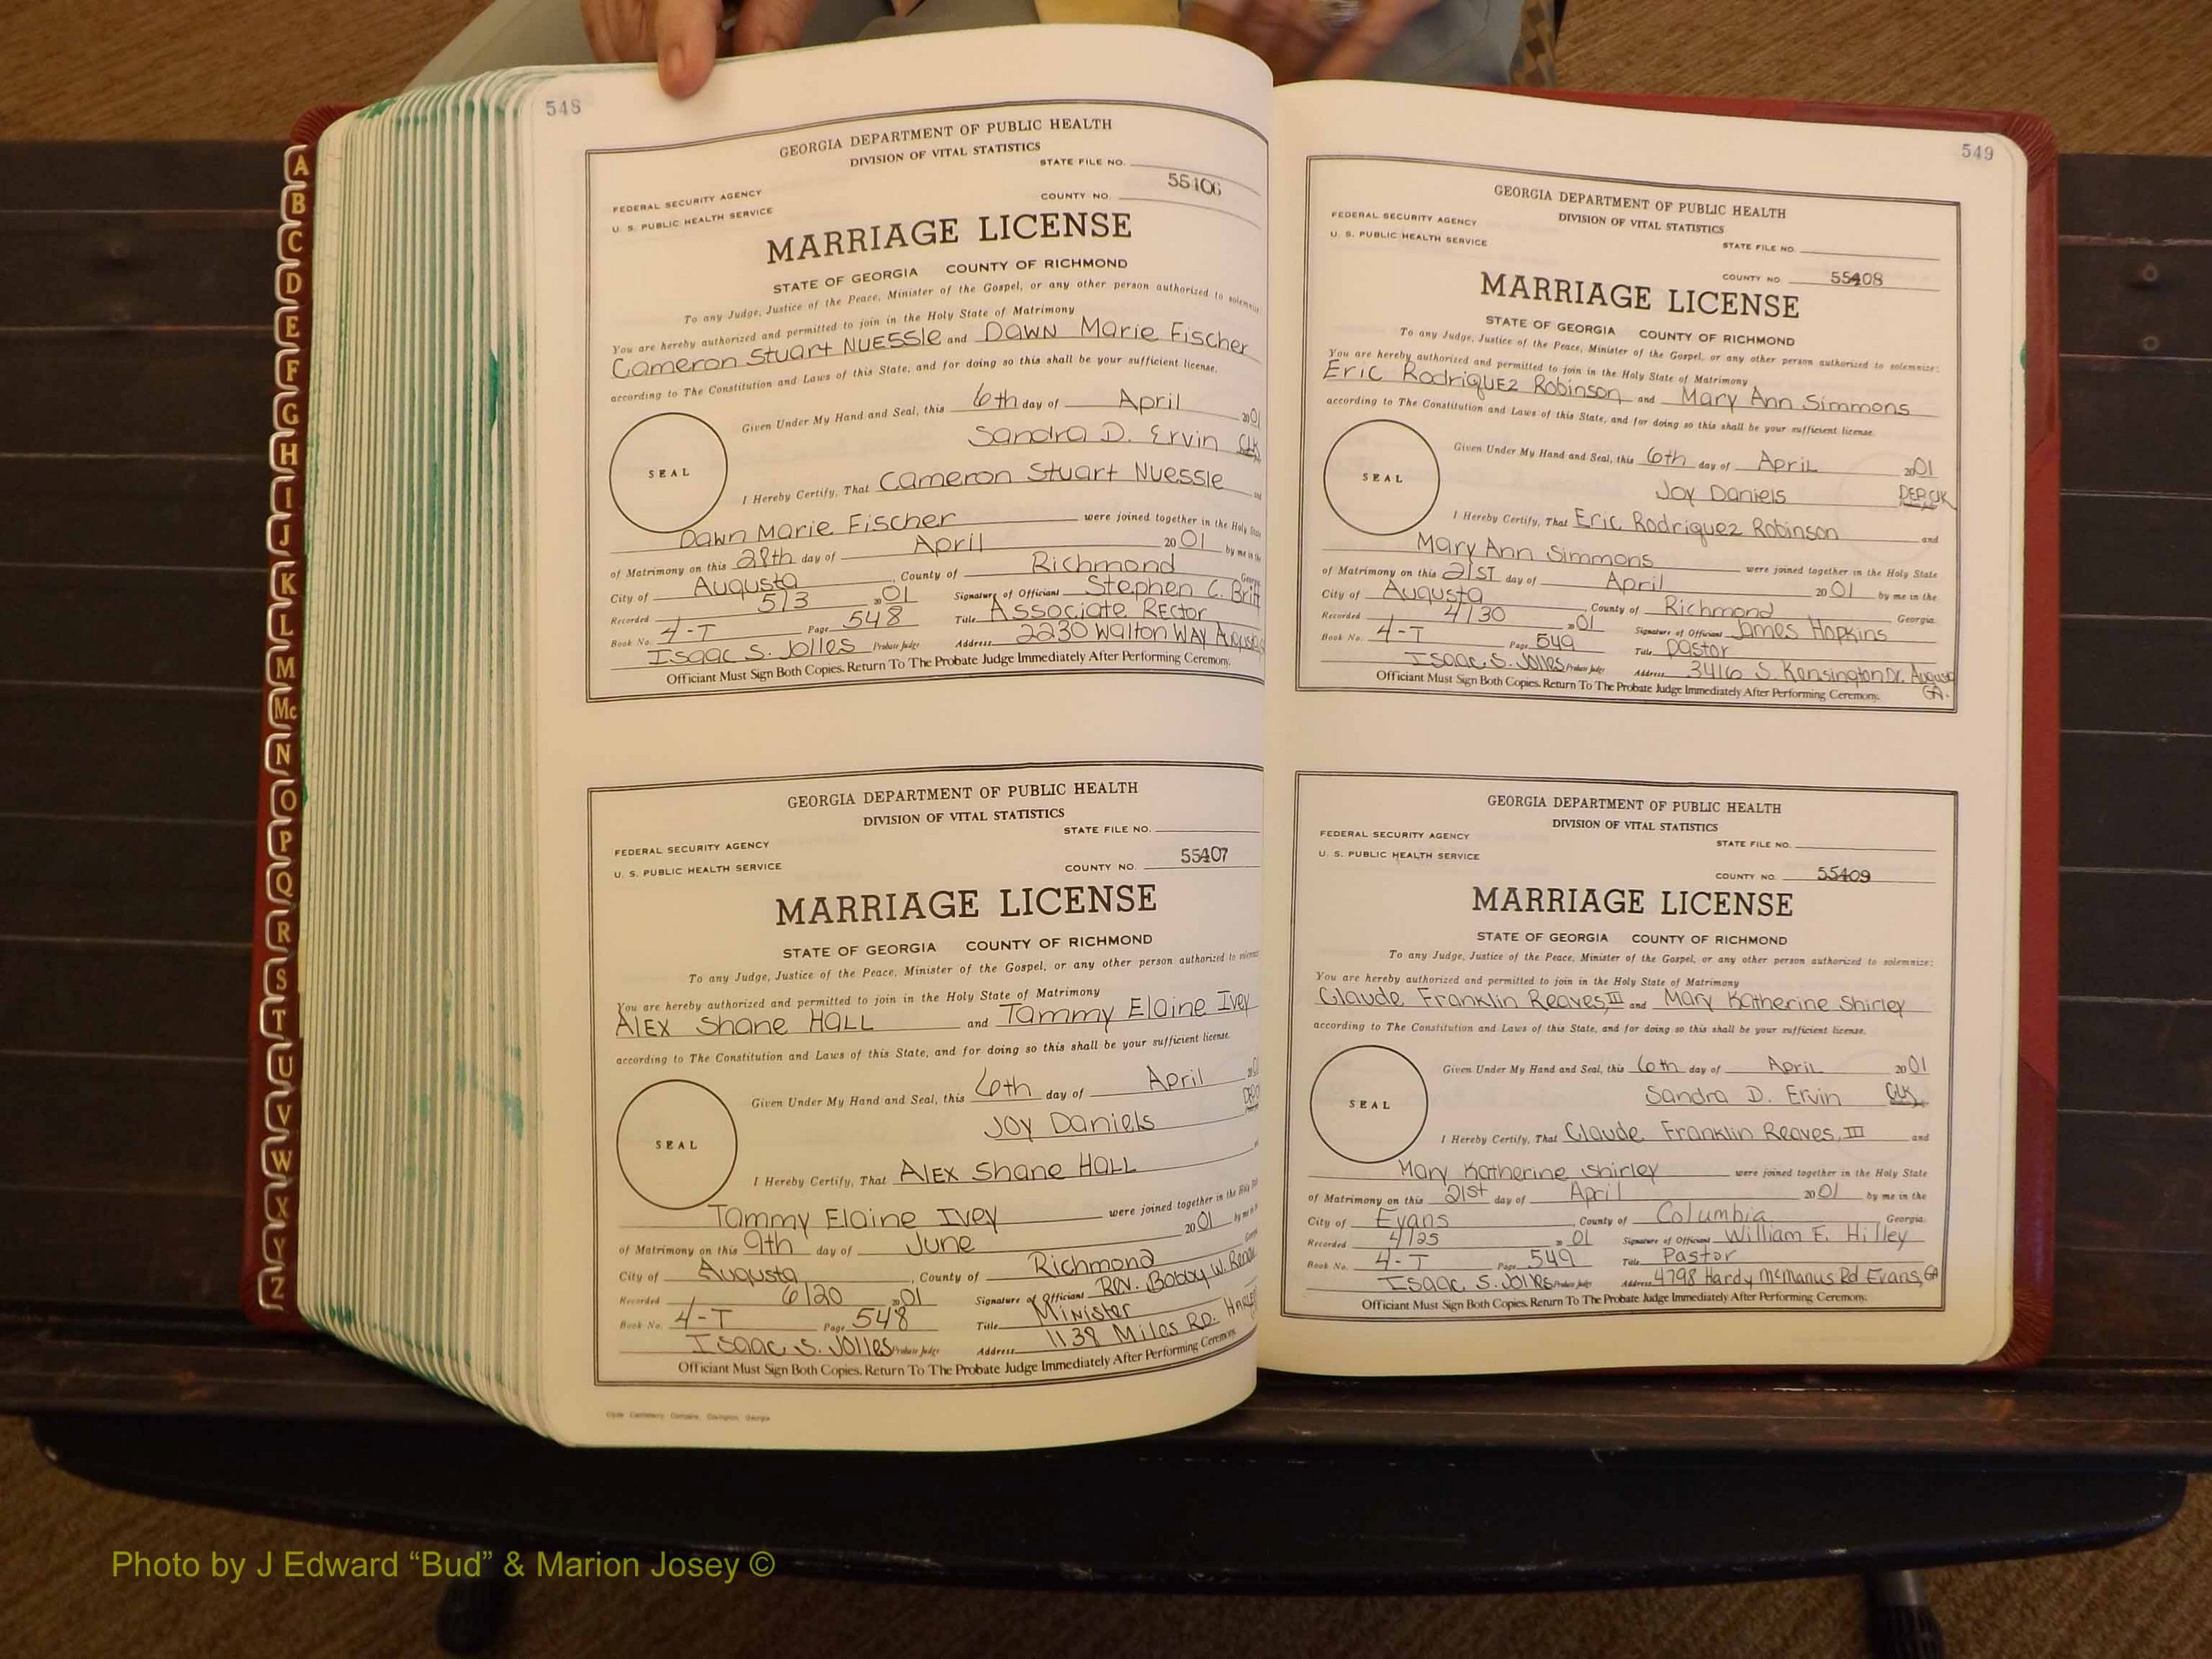 548
GEORGIA DEPARTMENT OF PUBLIC HEALTH
DIVISION OF VITAL STATISTICS
STATE FILE NO.
FEDERAL SECURITY AGENCY
U. S. PUBLIC HEALTH SERVICE
COUNTY NO. 55406
MARRIAGE LICENSE
STATE OF GEORGIA COUNTY OF RICHMOND
To any Judge, Justice of the Peace, Minister of the Gospel, or any other person authorized to solemnize
You are hereby authorized and permitted to join in the Holy State of Matrimony
Cameron Stuart NUESSle and DAWN Marie Fischer
according to The Constitution and Laws of this State, and for doing so this shall be your sufficient license.
Given Under My Hand and Seal, this 6th day of April 2001
Sandra D. Ervin Clk
SEAL
I Hereby Certify, That Cameron Stuart Nuessle and
Dawn Marie Fischer were joined together in the Holy State
of Matrimony on this 28th day of April 2001 by me in the
City of Augusta, County of Richmond
Recorded 5/3 2001 Signature of Official Stephen C. Britt
Book No. 4-T Page 548 Title Associate RECtor
Isaac S. Jolles Probate Judge Address 2230 Walton WAY Augusta
Officiant Must Sign Both Copies. Return To The Probate Judge Immediately After Performing Ceremony.
GEORGIA DEPARTMENT OF PUBLIC HEALTH
DIVISION OF VITAL STATISTICS
STATE FILE NO.
FEDERAL SECURITY AGENCY
U. S. PUBLIC HEALTH SERVICE
COUNTY NO. 55407
MARRIAGE LICENSE
STATE OF GEORGIA COUNTY OF RICHMOND
To any Judge, Justice of the Peace, Minister of the Gospel, or any other person authorized to
You are hereby authorized and permitted to join in the Holy State of Matrimony
ALEX Shane HALL and Tammy Elaine Ivey
according to The Constitution and Laws of this State, and for doing so this shall be your sufficient license.
Given Under My Hand and Seal, this 6th day of April
Joy Daniels
SEAL
I Hereby Certify, That ALEX Shane HALL
Tammy Elaine Ivey were joined together in the Holy
of Matrimony on this 9th day of June 2001 by me in
City of Augusta, County of Richmond
Recorded 6/20 2001 Signature of Official REV. Bobby W.
Book No. 4-T Page 548 Title Minister
Isaac S. Jolles Probate Judge Address 1138 Miles RD.
Officiant Must Sign Both Copies. Return To The Probate Judge Immediately After Performing Ceremony.
549
GEORGIA DEPARTMENT OF PUBLIC HEALTH
DIVISION OF VITAL STATISTICS
FEDERAL SECURITY AGENCY
U. S. PUBLIC HEALTH SERVICE
STATE FILE NO.
COUNTY NO. 55408
MARRIAGE LICENSE
STATE OF GEORGIA COUNTY OF RICHMOND
To any Judge, Justice of the Peace, Minister of the Gospel, or any other person authorized to solemnize:
You are hereby authorized and permitted to join in the Holy State of Matrimony
Eric RodriqUEZ Robinson and Mary Ann Simmons
according to The Constitution and Laws of this State, and for doing so this shall be your sufficient license.
Given Under My Hand and Seal, this 6th day of April 2001
Joy Daniels DEP. Clk
SEAL
I Hereby Certify, That Eric Rodriquez Robinson and
Mary Ann Simmons were joined together in the Holy State
of Matrimony on this 21ST day of April 2001 by me in the
City of Augusta, County of Richmond Georgia
Recorded 4/30 2001 Signature of Official James Hopkins
Book No. 4-T Page 549 Title pastor
Isaac S. Jolles Probate Judge Address 3416 S. Kensington Dr. Augusta GA.
Officiant Must Sign Both Copies. Return To The Probate Judge Immediately After Performing Ceremony.
GEORGIA DEPARTMENT OF PUBLIC HEALTH
DIVISION OF VITAL STATISTICS
FEDERAL SECURITY AGENCY
STATE FILE NO.
U. S. PUBLIC HEALTH SERVICE
COUNTY NO. 55409
MARRIAGE LICENSE
STATE OF GEORGIA COUNTY OF RICHMOND
To any Judge, Justice of the Peace, Minister of the Gospel, or any other person authorized to solemnize:
You are hereby authorized and permitted to join in the Holy State of Matrimony
Claude Franklin Reaves, III and Mary Katherine Shirley
according to The Constitution and Laws of this State, and for doing so this shall be your sufficient license.
Given Under My Hand and Seal, this 6th day of April 2001
Sandra D. Ervin Clk
SEAL
I Hereby Certify, That Claude Franklin Reaves, III and
Mary Katherine Shirley were joined together in the Holy State
of Matrimony on this 21st day of April 2001 by me in the
City of Evans, County of Columbia Georgia
Recorded 4/25 2001 Signature of Official William E. Hilley
Book No. 4-T Page 549 Title Pastor
Isaac S. Jolles Probate Judge Address 4798 Hardy McManus Rd Evans, GA
Officiant Must Sign Both Copies. Return To The Probate Judge Immediately After Performing Ceremony.
A
B
C
D
E
F
G
H
I
J
K
L
M
Mc
N
O
P
Q
R
S
T
U
V
W
X
Y
Z
Photo by J Edward “Bud” & Marion Josey ©